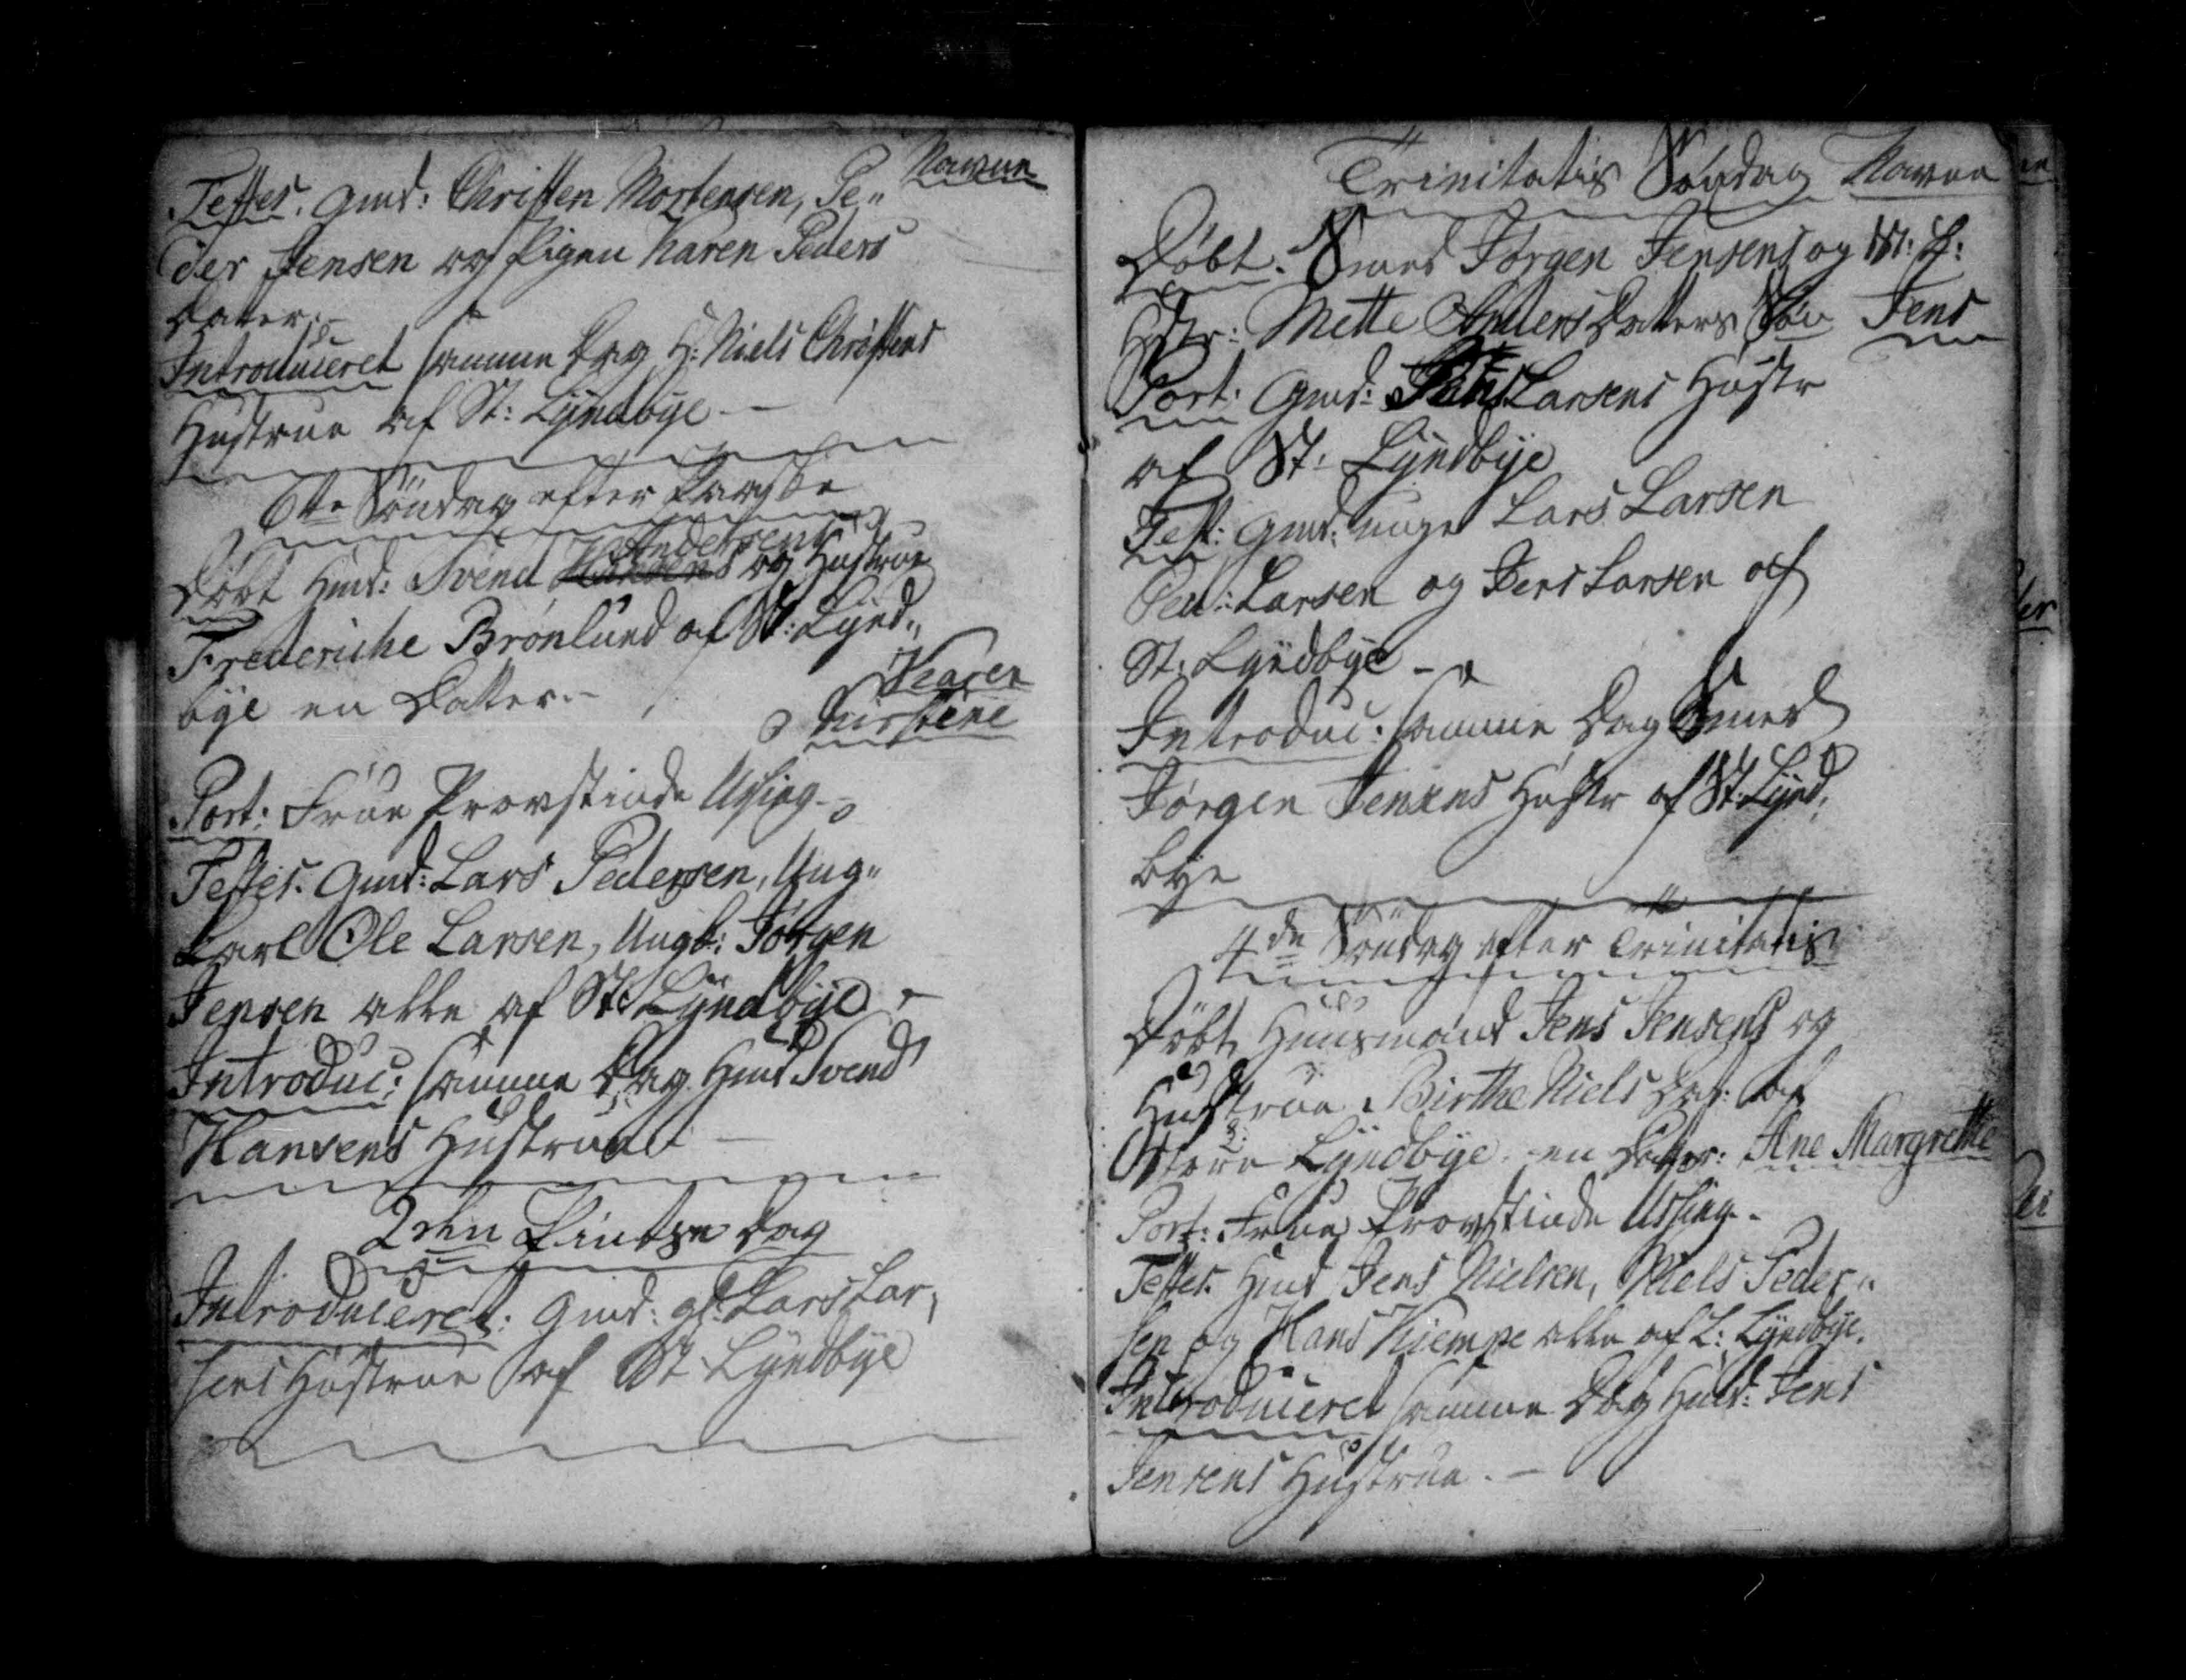 Navne
Testes. Gmd: Christen Mortensen, Pe„
der Jensen og Pigen Karen Peders
Dater.
Introduceret samme Dag H: Niels Christens
Hustrue af St: Lyndbye —
6te Söndag efter Paaske
Andersens
Döbt Hmd: Svend Hansens og Hustrue
Frederiche Brönlund af St: Lynd„
bye en Datter. —
Karen
Kirstine
Port: Frue Provstinde Ussing
Testes. Gmd: Lars Pedersen, Ung„
karl Ole Larsen, Ungk: Jörgen
Jensen alle af St: Lyndbye —
Introduc: samme Dag Hmd Svend
Hansens Hustrue —
2den Pintse Dag
Introduceret: Gmd: gl: Lars Lar„
sens Hustrue af St: Lyndbye
Trinitatis Söndag Navne
Döbt. Smed Jörgen Jensens og
Hstr: Mette Anders Datters Sön Jens
Port: Gmd: Larsens Hustr
af St: Lyndbye
Test: Gmd: unge Lars Larsen
Ped: Larsen og Jens Larsen af
St: Lyndbye —
Introduc: samme Dag Smed
Jörgen Jensens Hustr af St: Lynd„
bye
4de Söndag efter Trinitatis
Döbt Huusmand Jens Jensens og
Hustrue Birthe Niels Dat: af
Store Lyndbye en Datter: Ane Margrethe
Port: Frue Provstinde Ussing -
Testes. Hmd Jens Nielsen, Niels Peder„
sen og Hans Kiempe alle af L: Lyndbye.
Introduceret samme Dag Hmd: Jens
Jensens Hustrue. —